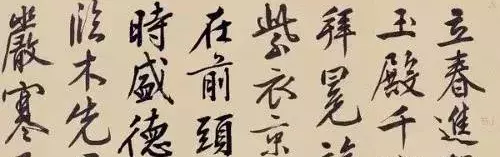 立春進
玉殿千
拜冕
紫衣京
在前頭
時盛德
臨木先
嚴寒